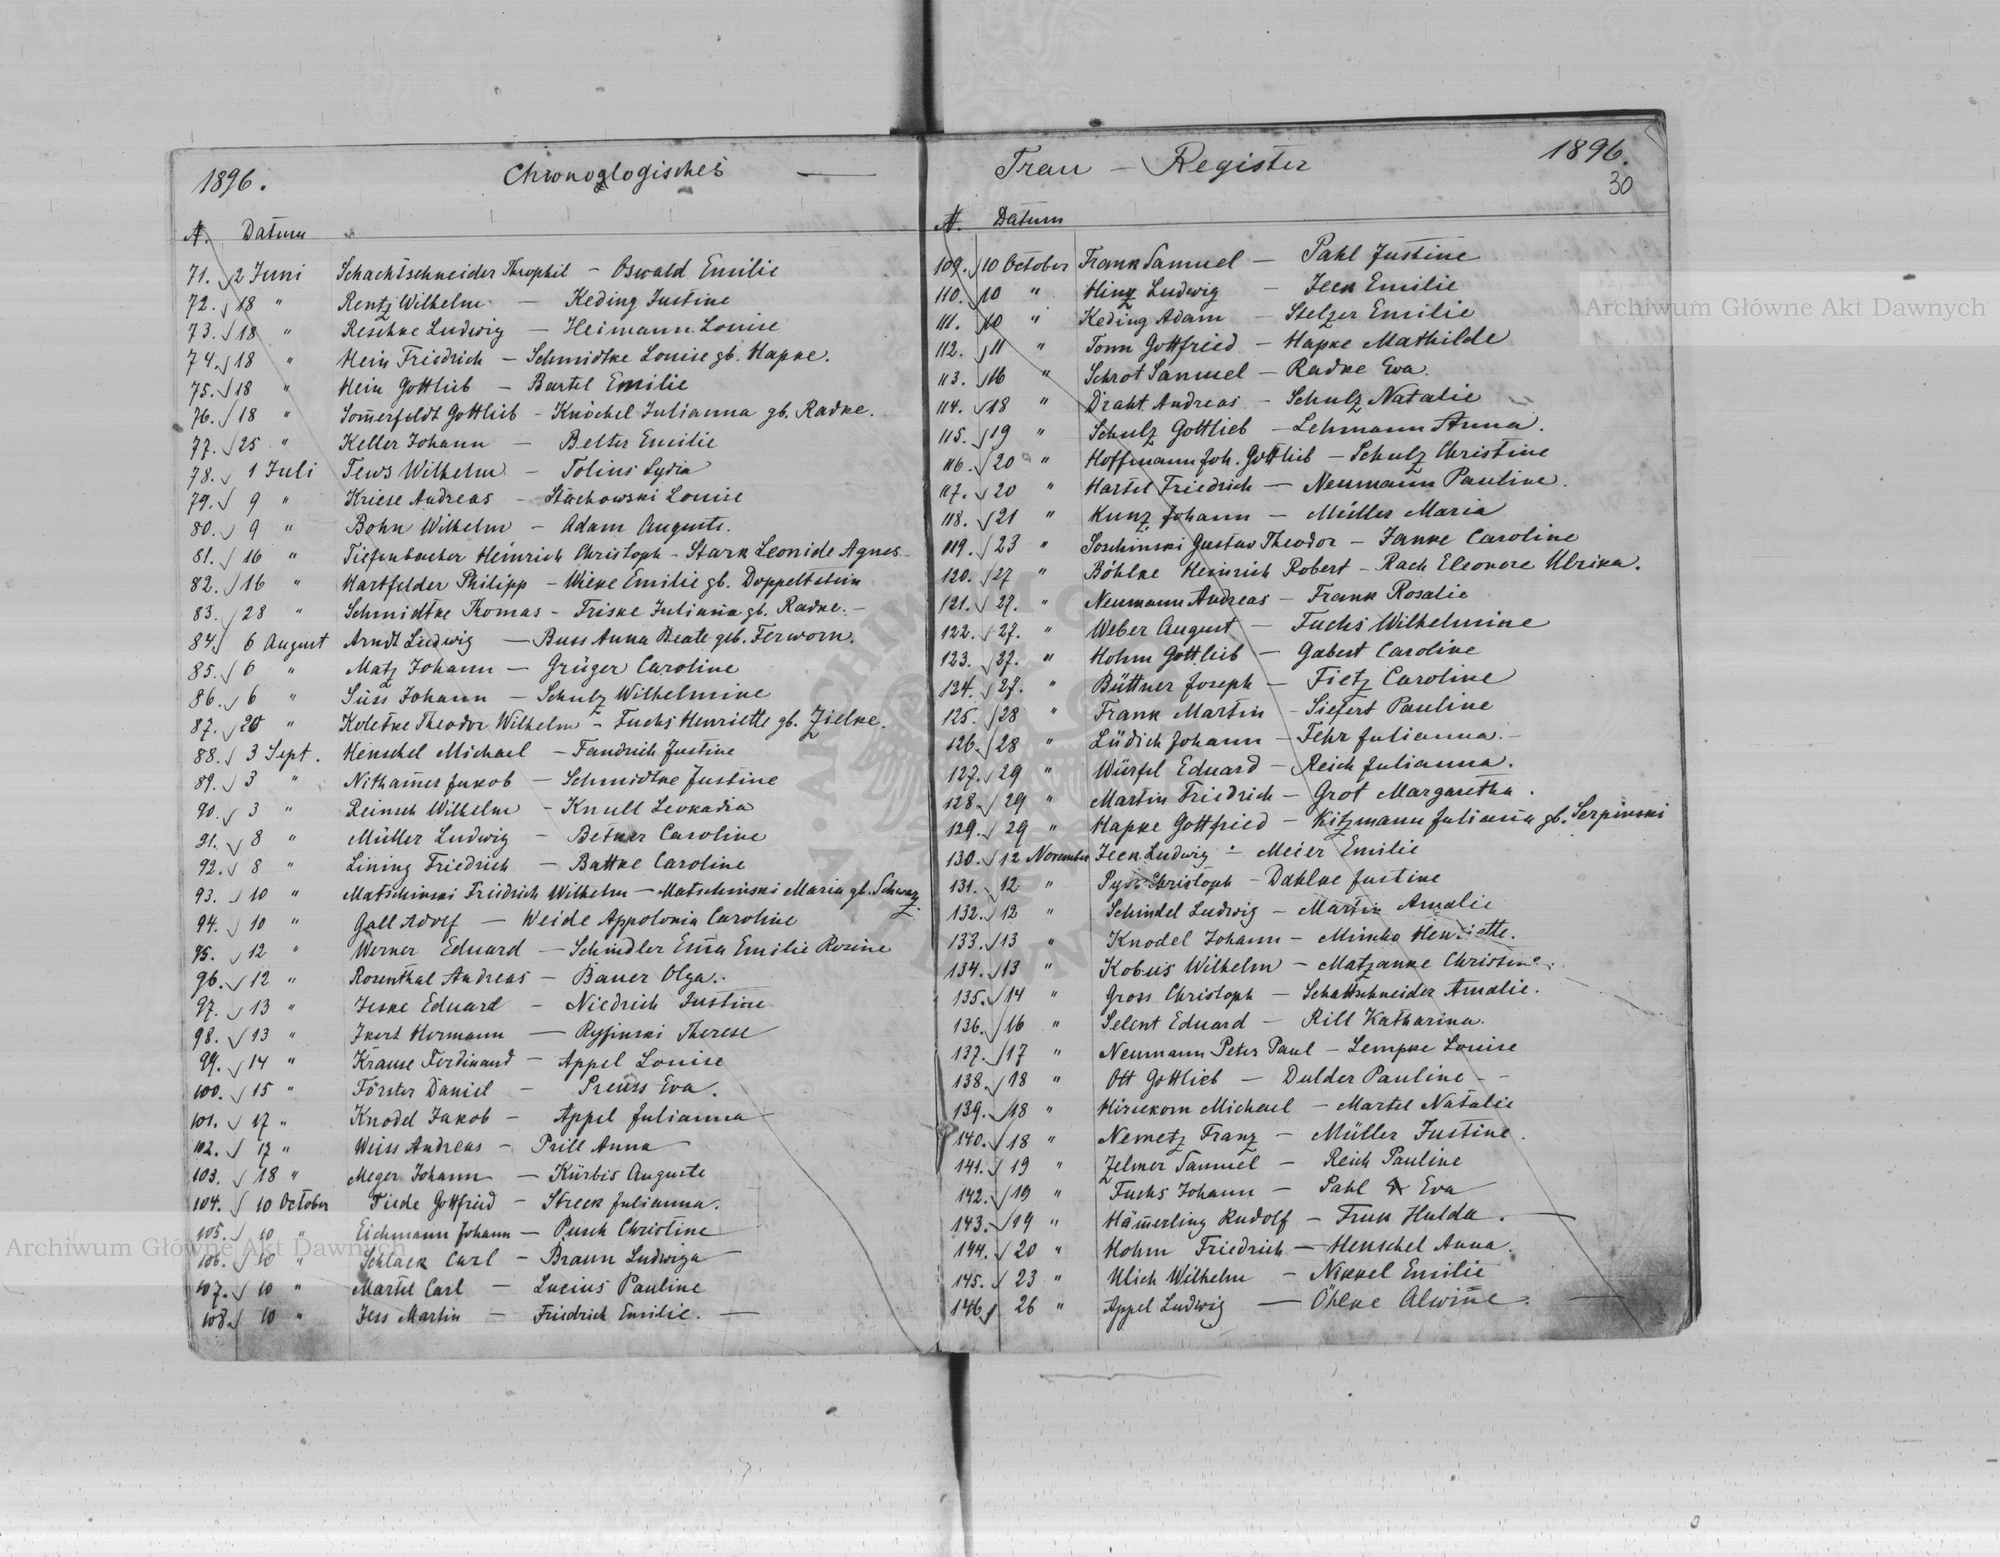 1896.
Chronoglogisches —
№. Datum
71. 2 Juni Schachtschneider Theophil - Oswald Emilie
72. 18 " Rentz Wilhelm - Keding Justine
73. 18 " Reschke Ludwig - Heimann Louise
74. 18 " Hein Friedrich - Schmidtke Louise gb. Hapke.
75. 18 " Hein Gottlieb - Bartel Emilie
76. 18 " Som̄erfeldt Gottlieb - Knöchel Julianna gb. Radke.
77. 25 " Keller Johann - Belter Emilie
78. 1 Juli Tews Wilhelm - Tolius Lydia
79. 9 " Kriese Andreas - Stachowski Louise
80. 9 " Bohn Wilhelm - Adam Auguste.
81. 16 " Tiefenbacher Heinrich Christoph - Stark Leonide Agnes
82. 16 " Hartfelder Philipp - Wieke Emilie gb. Doppelstein
83. 28 " Schmidtke Thomas - Friske Julian̄a gb. Radke. -
84. 6 August Arndt Ludwig - Buss Anna Beate geb. Ferworn.
85. 6 " Matz Johann - Grüger Caroline
86. 6 " Süss Johann - Schulz Wilhelmine
87. 20 " Koletke Theodor Wilhelm - Fuchs Henriette gb. Zielke.
88. 3 Sept. Henschel Michael - Fandrich Justine
89. 3 " Nitham̄er Jakob - Schmidtke Justine
90. 3 " Reinsch Wilhelm - Knull Leokadia
91. 8 " Müller Ludwig - Betker Caroline
92. 8 " Lining Friedrich - Battke Caroline
93. 10 " Matschinski Friedrich Wilhelm - Matschinski Maria gb. Schwarz.
94. 10 " Gall Adolf - Weide Appolonia Caroline
95. 12 " Werner Eduard - Schindler Em̄a Emilie Rosine
96. 12 " Rosenthal Andreas - Bauer Olga.
97. 13 " Jeske Eduard - Niedrich Justine
98. 13 " Ikert Hermann - Ryfinski Therese
99. 14 " Krause Ferdinand - Appel Louise
100. 15 " Förster Daniel - Preuss Eva.
101. 17 " Knodel Jakob - Appel Julianna
102. 17 " Weiss Andreas - Prill Anna
103. 18 " Meger Johann - Kürbis Auguste
104. 10 October Tiede Gottfried - Streck Julianna.
105. 10 " Eichmann Johann - Pusch Christine
106. 10 " Schlack Carl - Braun Ludwiga
107. 10 " Martel Carl - Lucius Pauline
108. 10 " Jess Martin - Friedrich Emilie. -
Trau - Register
1896.
30
№. Datum
109. 10 October Frank Samuel - Pahl Justine
110. 10 " Hinz Ludwig - Jeck Emilie
111. 10 " Keding Adam - Stelzer Emilie
112. 11 " Tonn Gottfried - Hapke Mathilde
113. 16 " Schrot Samuel - Radke Eva.
114. 18 " Draht Andreas - Schulz Natalie
115. 19 " Schulz Gottlieb - Lehmann Anna.
116. 20 " Hoffmann Joh. Gottlieb - Schulz Christine
117. 20 " Hartel Friedrich - Neumann Pauline.
118. 21 " Kunz Johann - Müller Maria
119. 23 " Soschinski Gustav Theodor - Janke Caroline
120. 27 " Böhlke Heinrich Robert - Rach Eleonore Ulrika.
121. 27. " Neumann Andreas - Frank Rosalie
122. 27. " Weber August - Fuchs Wilhelmine
123. 27. " Hohm Gottlieb - Gabert Caroline
124. 27. " Büttner Joseph - Tietz Caroline
125. 28 " Frank Martin - Siefert Pauline
126. 28 " Lüdich Johann - Fehr Julianna. -
127. 29 " Würfel Eduard - Reich Julianna.
128. 29 " Martin Friedrich - Grot Margaretha.
129. 29 " Hapke Gottfried - Kitzmann Julian̄a gb. Serpinski
130. 12 November Jeck Ludwig - Meier Emilie
131. 12 " Christoph - Dahlke Justine
132. 12 " Schindel Ludwig - Martin Amalie
133. 13 " Knodel Johann - Mimko Henriette.
134. 13 " Kobus Wilhelm - Matzanke Christine.
135. 14 " Gross Christoph - Schattschneider Amalie.
136. 16 " Selent Eduard - Rill Katharina.
137. 17 " Neumann Peter Paul - Lempke Louise
138. 18 " Ott Gottlieb - Dulder Pauline - -
139. 18 " Hirsekorn Michael - Martel Natalie
140. 18 " Nemetz Franz - Müller Justine.
141. 19 " Zelmer Samuel - Reich Pauline
142. 19 " Fuchs Johann - Pahl Eva
143. 19 " Häm̄erling Rudolf - Fruk Hulda. -
144. 20 " Hohm Friedrich - Henschel Anna.
145. 23 " Ulich Wilhelm - Nikkel Emilie
146. 26 " Appel Ludwig - Öhlke Alwine. -
Archiwum Główne Akt Dawnych
Archiwum Główne Akt Dawnych